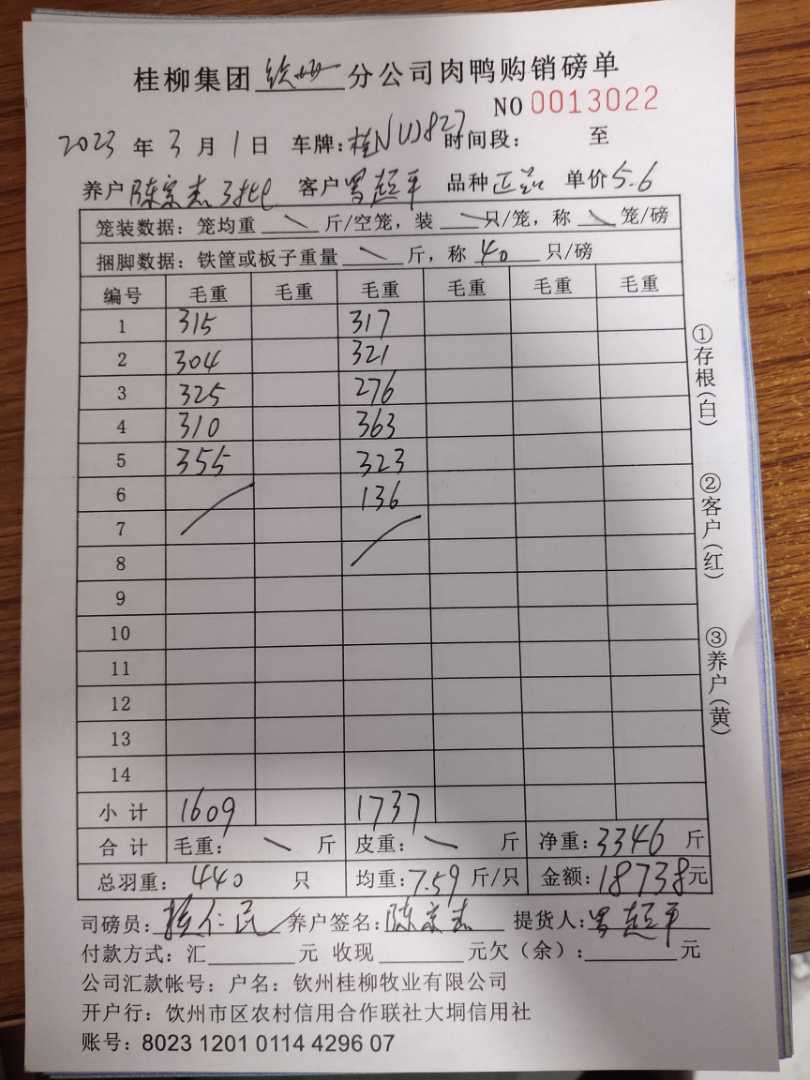 桂柳集团 钦州 分公司肉鸭购销磅单
NO 0013022
2023 年 3 月 1 日 车牌：桂NU827 时间段： 至
养户 陈京志 3批 客户 罗超平 品种 正 单价 5.6
笼装数据：笼均重 \ 斤/空笼，装 \ 只/笼，称 \ 笼/磅
捆脚数据：铁筐或板子重量 \ 斤，称 40 只/磅
编号 毛重 毛重 毛重 毛重 毛重 毛重
1 315 317
2 304 321
3 325 276
4 310 363
5 355 323
6 136
7
8
9
10
11
12
13
14
小 计 1609 1737
合 计 毛重： \ 斤 皮重： \ 斤 净重：3346 斤
总羽重： 440 只 均重：7.59 斤/只 金额：18738元
司磅员： 仁民 养户签名：陈京志 提货人：罗超平
付款方式：汇 元 收现 元欠（余）： 元
公司汇款帐号：户名：钦州桂柳牧业有限公司
开户行：饮州市区农村信用合作联社大垌信用社
账号：8023 1201 0114 4296 07
①存根(白)
②客户(红)
③养户(黄)